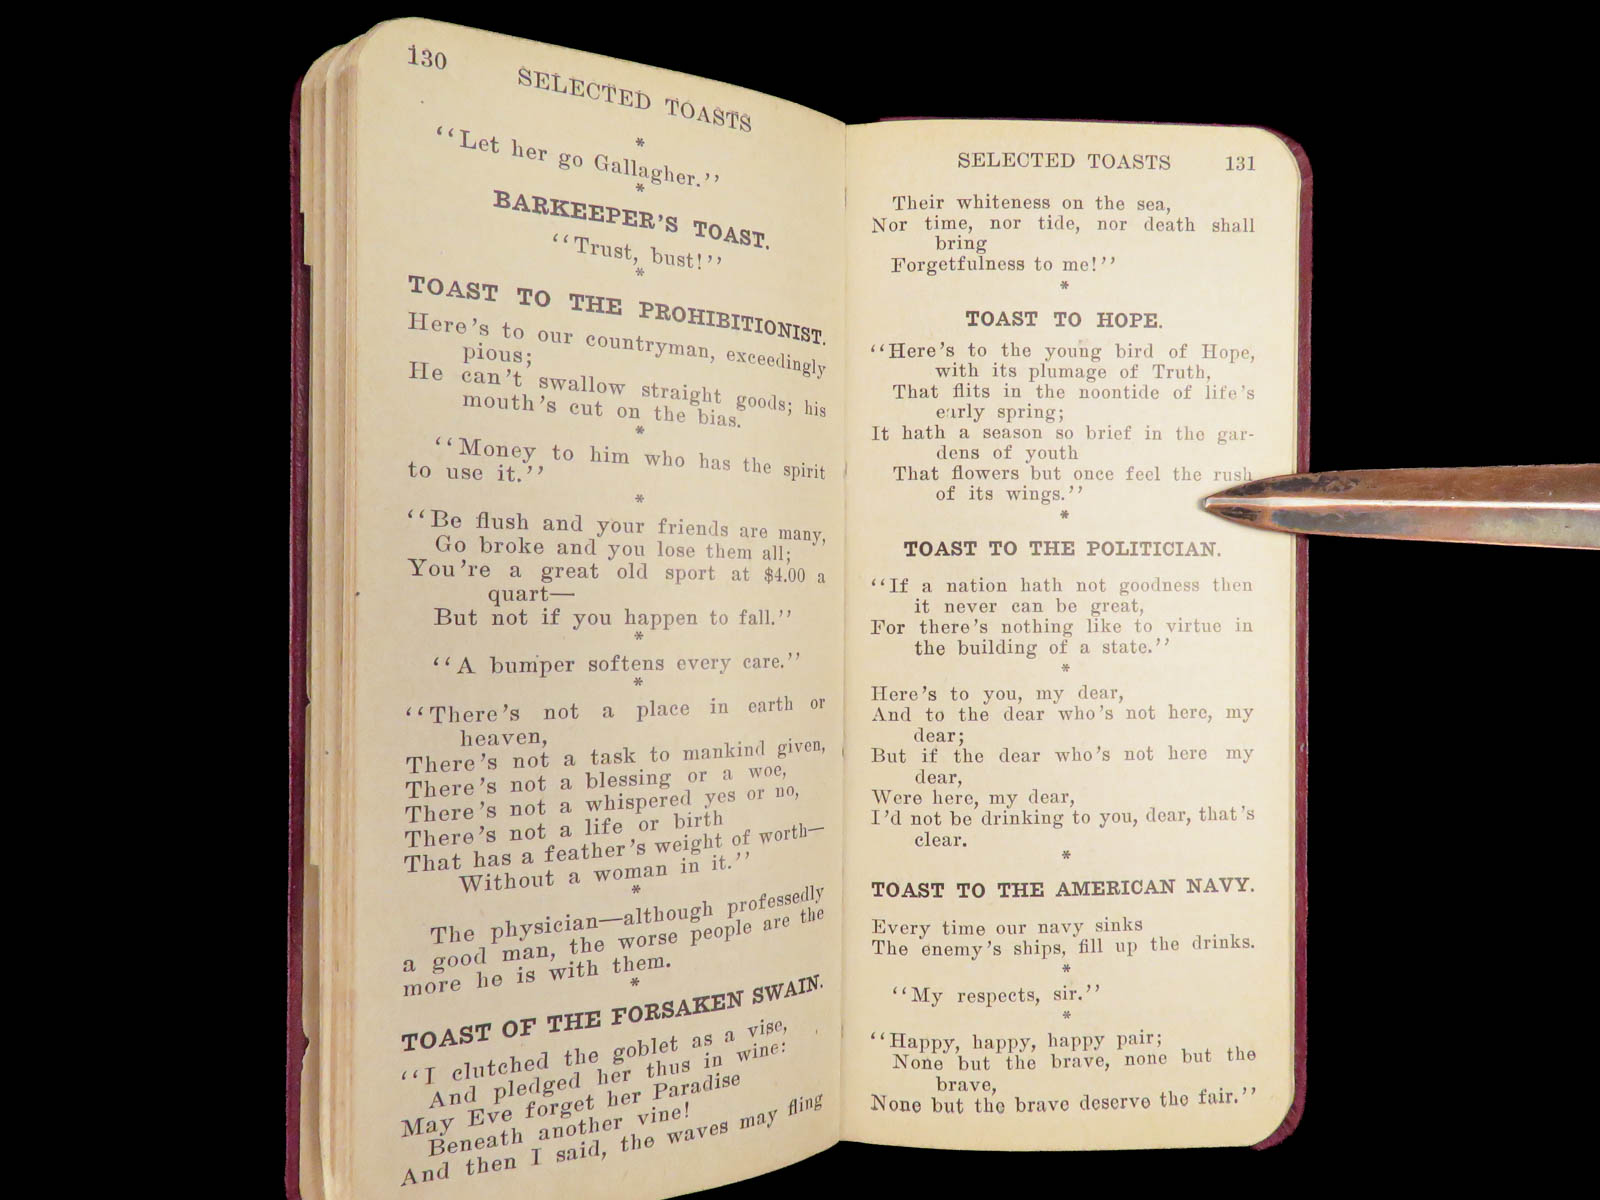 130
SELECTED TOASTS
*
“Let her go Gallagher.”
*
BARKEEPER’S TOAST.
“Trust, bust!”
*
TOAST TO THE PROHIBITIONIST.
Here’s to our countryman, exceedingly
pious;
He can’t swallow straight goods; his
mouth’s cut on the bias.
*
“Money to him who has the spirit
to use it.”
*
“Be flush and your friends are many,
Go broke and you lose them all;
You’re a great old sport at $4.00 a
quart—
But not if you happen to fall.”
*
“A bumper softens every care.”
*
“There’s not a place in earth or
heaven,
There’s not a task to mankind given,
There’s not a blessing or a woe,
There’s not a whispered yes or no,
There’s not a life or birth
That has a feather’s weight of worth—
Without a woman in it.”
*
The physician—although professedly
a good man, the worse people are the
more he is with them.
*
TOAST OF THE FORSAKEN SWAIN.
“I clutched the goblet as a vise,
And pledged her thus in wine:
May Eve forget her Paradise
Beneath another vine!
And then I said, the waves may fling
SELECTED TOASTS 131
Their whiteness on the sea,
Nor time, nor tide, nor death shall
bring
Forgetfulness to me!”
*
TOAST TO HOPE.
“Here’s to the young bird of Hope,
with its plumage of Truth,
That flits in the noontide of life’s
early spring;
It hath a season so brief in the gar-
dens of youth
That flowers but once feel the rush
of its wings.”
*
TOAST TO THE POLITICIAN.
“If a nation hath not goodness then
it never can be great,
For there’s nothing like to virtue in
the building of a state.”
*
Here’s to you, my dear,
And to the dear who’s not here, my
dear;
But if the dear who’s not here my
dear,
Were here, my dear,
I’d not be drinking to you, dear, that’s
clear.
*
TOAST TO THE AMERICAN NAVY.
Every time our navy sinks
The enemy’s ships, fill up the drinks.
*
“My respects, sir.”
*
“Happy, happy, happy pair;
None but the brave, none but the
brave,
None but the brave deserve the fair.”